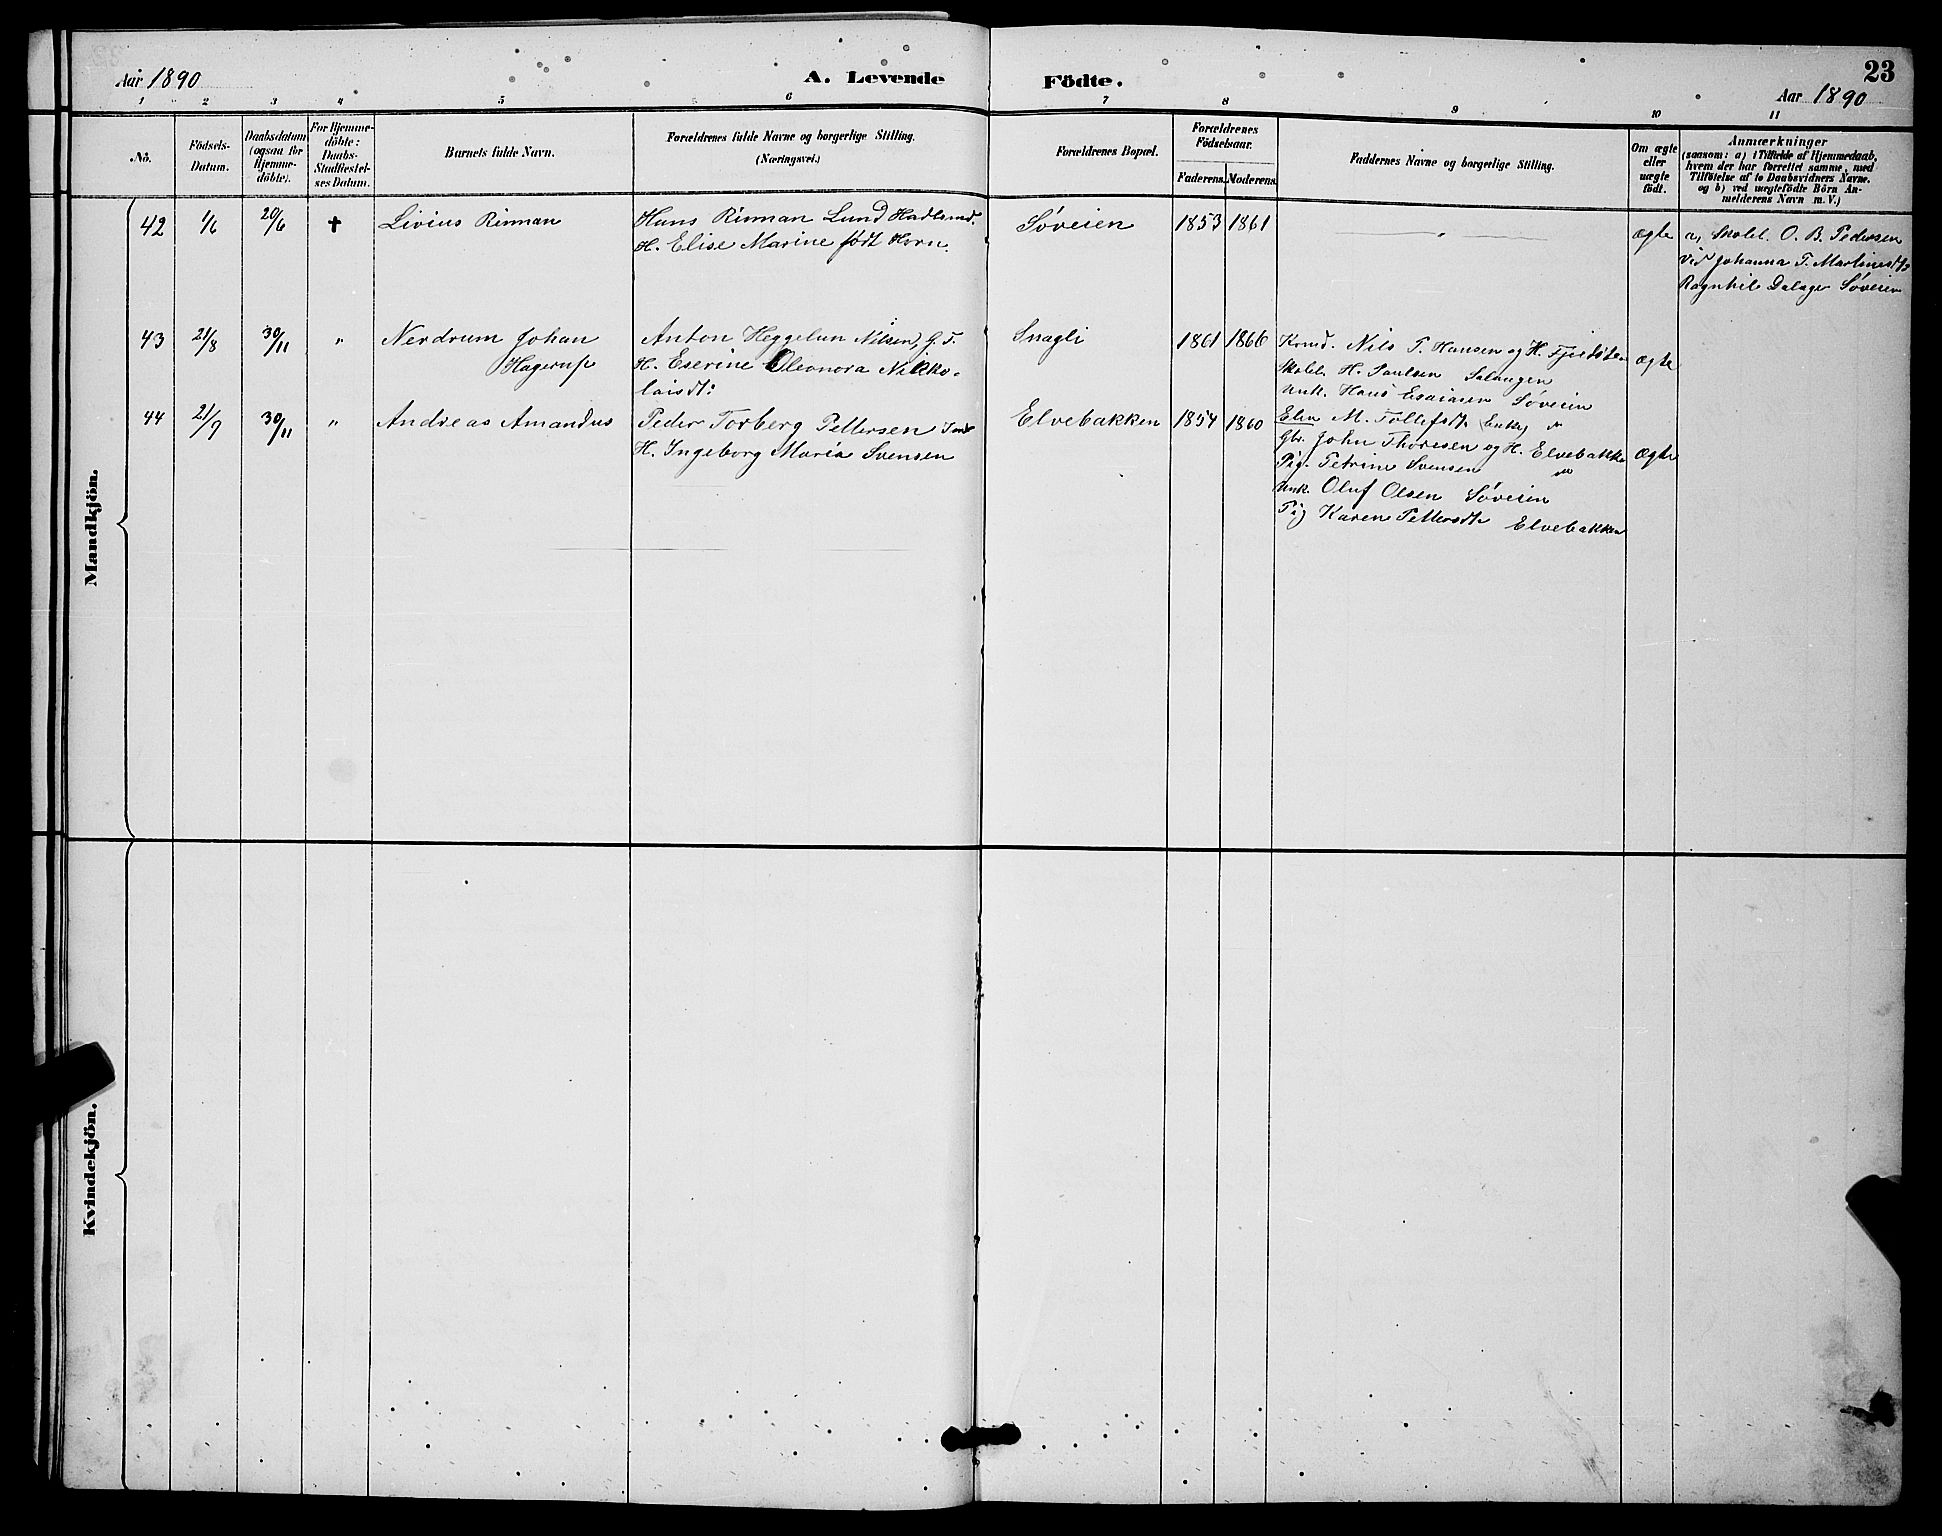 23
Aar 1890
A. Levende Födte.
Aar 1890
1 2 3 4 5 6 7 8 9 10 11
No.
Födsels-
Datum.
Daabsdatum
(ogsaa for
Hjemme-
döbte).
For Hjemme-
döbte:
Daabs-
Stadfæstel-
ses Datum.
Barnets fulde Navn.
Forældrenes fulde Navne og borgerlige Stilling.
(Næringsvei.)
Forældrenes Bopæl.
Forældrenes
Födselsaar.
Faderens. Moderens.
Faddernes Navne og borgerlige Stilling.
Om ægte
eller
uægte
födt.
Anmærkninger
(saasom: a) i Tilfælde af Hjemmedaab,
hvem der har forrettet samme, med
Tilföielse af to Daabsvidners Navne,
og b) ved uægtefödte Börn An-
melderens Navn m. V.)
Mandkjön.
42 1/6 20/6 † Livius Rinman
Hans Rinman Lund
H. Elise Marine født Horn.
Søveien 1853 1861 " ægte
a, Skolel. O. B. Pedersen
Vid Johanna T.
Ragnhil Dalage Søveien
43 21/8 30/11 " Nerdrum Johan
Hagerup
Anton Heggelun Nilsen, G. F.
H. Eserine Eleonora Nikko-
laisdt:
Snagli 1861 1866
Nils P. Hansen og H.
Skolel. H. Paulsen Salangen
unk. Hans Esaiasen Søveien
M. Tollefsdt Enke "
ægte
44 21/9 30/11 " Andreas Amandus
Peder Torberg Pettersen
H. Ingeborg Maria Svensen
Elvebakken 1854 1860
Gbr. John Thoresen og H. Elvebakke
Pig. Petrine Svensen "
unk. Oluf Olsen Søveien
Pig Karen Pettersdt Elvebakken
Ægte
Kvindekjön.